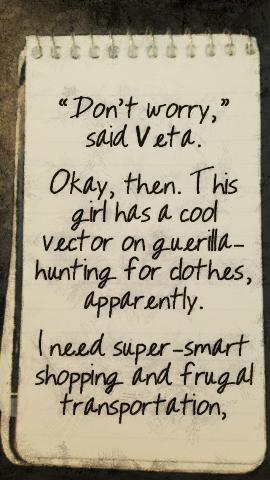 “Don't worry,”
said Veta.
Okay, then. This
girl has a cool
vector on guerilla-
hunting for clothes,
apparently.
I need super-smart
shopping and frugal
transportation,